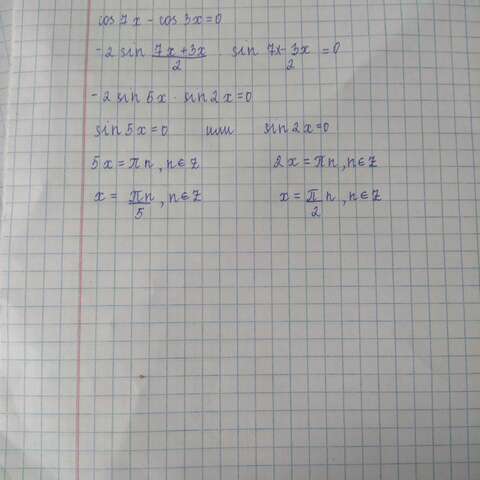 cos 7x - cos 3x = 0
-2 sin (7x + 3x)/2 · sin (7x - 3x)/2 = 0
-2 sin 5x · sin 2x = 0
sin 5x = 0 или sin 2x = 0
5x = πn, n ∈ Z 2x = πn, n ∈ Z
x = πn/5, n ∈ Z x = π/2 n, n ∈ Z